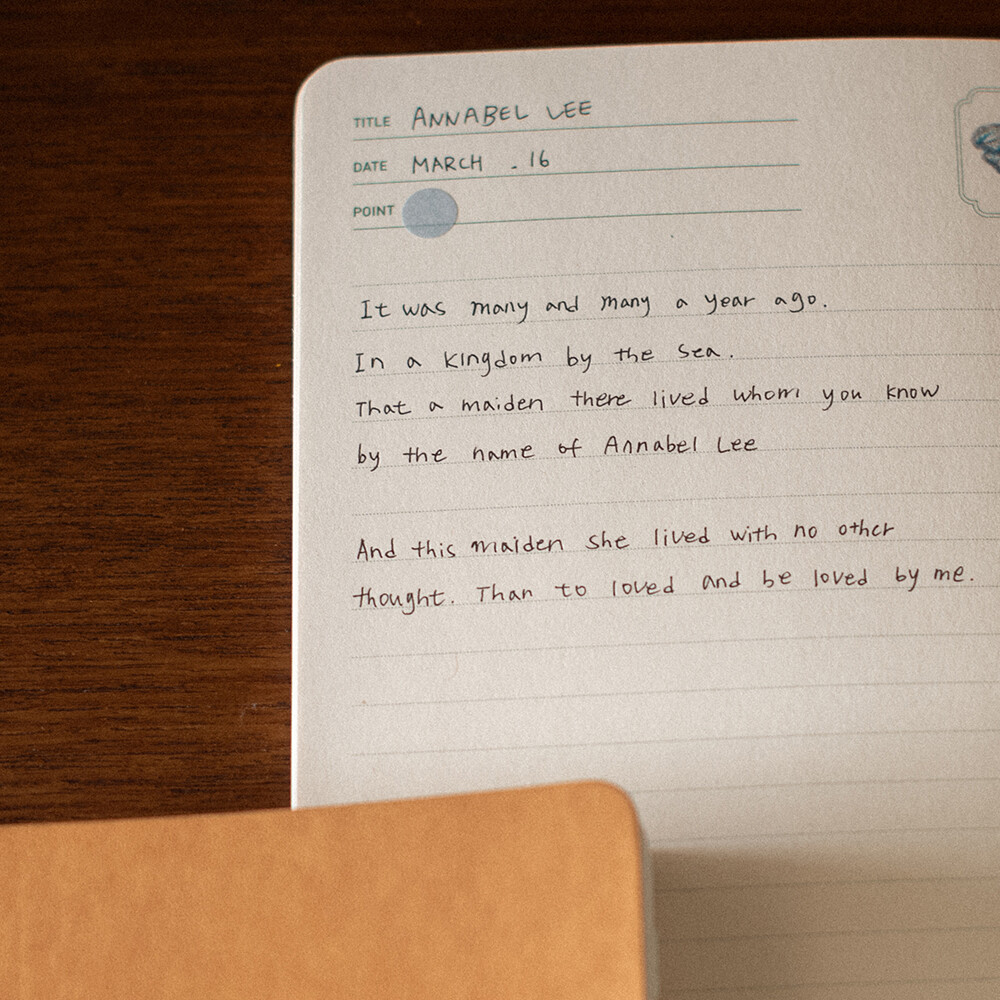 TITLE ANNABEL LEE
DATE MARCH . 16
POINT
It was many and many a year ago.
In a kingdom by the sea.
That a maiden there lived whom you know
by the name of Annabel Lee
And this maiden she lived with no other
thought. Than to loved and be loved by me.